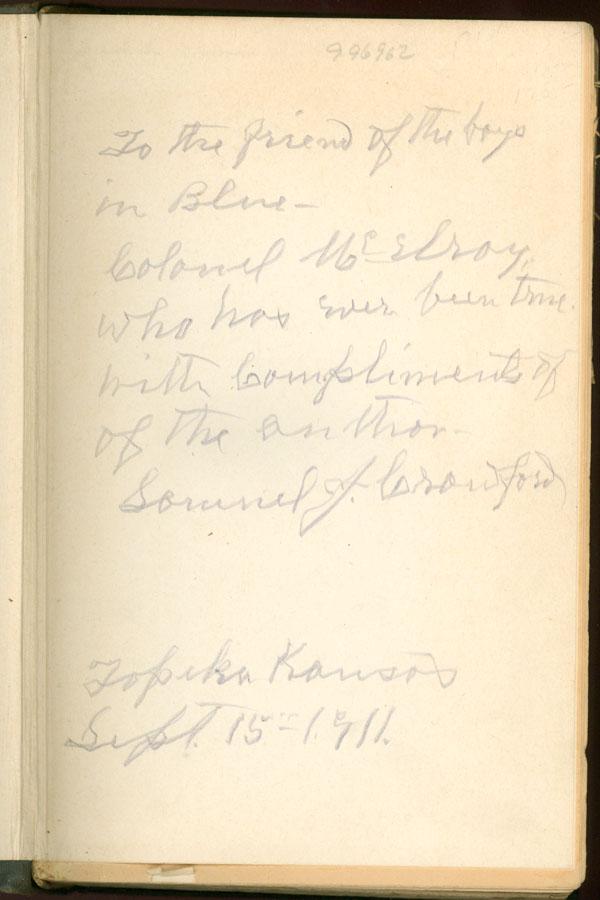 996962
To the friend of the boys
in Blue—
Colonel McElroy,
who has ever been true.
with Compliments of
of the author—
Samuel J. Crawford
Topeka Kansas
Sept. 15— 1911.